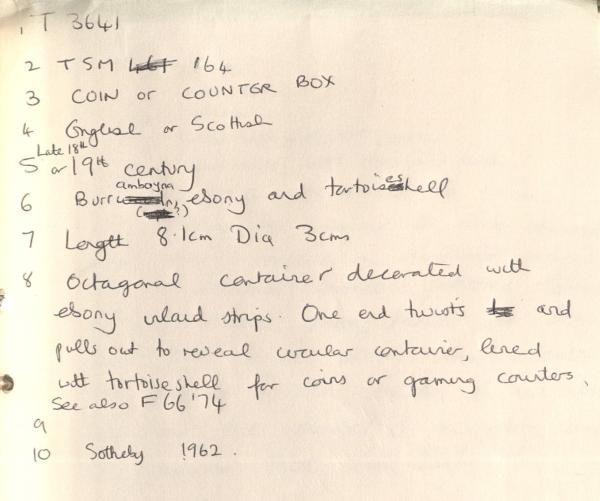 1 T 3641
2 TSM 164
3 COIN or COUNTER BOX
4 English or Scottish
Late 18th
5 or 19th century
amboyna
6 Burr, ebony and tortoiseshell
7 Length 8.1cm Dia 3cms
8 Octagonal container decorated with
ebony inlaid strips. One end twists and
pulls out to reveal circular container, lined
with tortoiseshell for coins or gaming counters.
See also F66'74
9
10 Sotheby 1962.